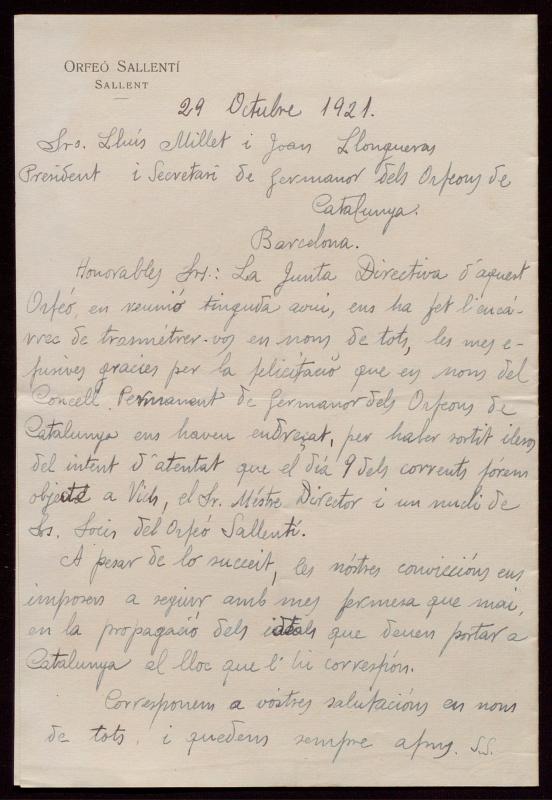 ORFEÓ SALLENTÍ
SALLENT
29 Octubre 1921.
Srs. Lluís Millet i Joan Llongueras
President i Secretari de Germanor dels Orfeons de
Catalunya.
Barcelona.
Honorables Srs.: La Junta Directiva d'aquest
Orfeó, en reunió tinguda avui, ens ha fet l'encá-
rrec de trasmétrer-vos en nom de tots, les mes e-
fusives gracies per la felicitació que en nom del
Concell Permanent de Germanor dels Orfeons de
Catalunya ens haveu endreçat, per haber sortit ilesos
del intent d'atentat que el día 9 dels corrents fórem
objecte a Vich, el Sr. Méstre Director i un nucli de
Srs. Socis del Orfeó Sallentí.
A pesar de lo succeit, les nóstres conviccións ens
imposen a seguir amb mes fermesa que mai,
en la propagació dels ideals que deuen portar a
Catalunya al lloc que l'hi correspón.
Corresponem a vóstres salutacións en nom
de tots, i quedem sempre afms. S.S.